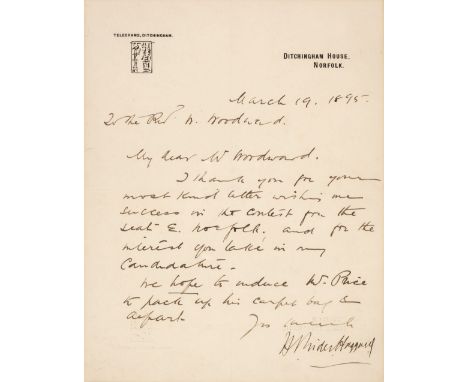 TELEGRAMS, DITCHINGHAM.
DITCHINGHAM HOUSE,
NORFOLK.
March 19. 1895.
To the Revd W. Woodward.
My dear Mr Woodward.
I thank you for your
most kind letter wishing me
success in the contest for the
seat E. Norfolk. and for the
interest you take in my
candidature.
We hope to induce Mr. Price
to pack up his carpet bag &
depart
H Rider Haggard